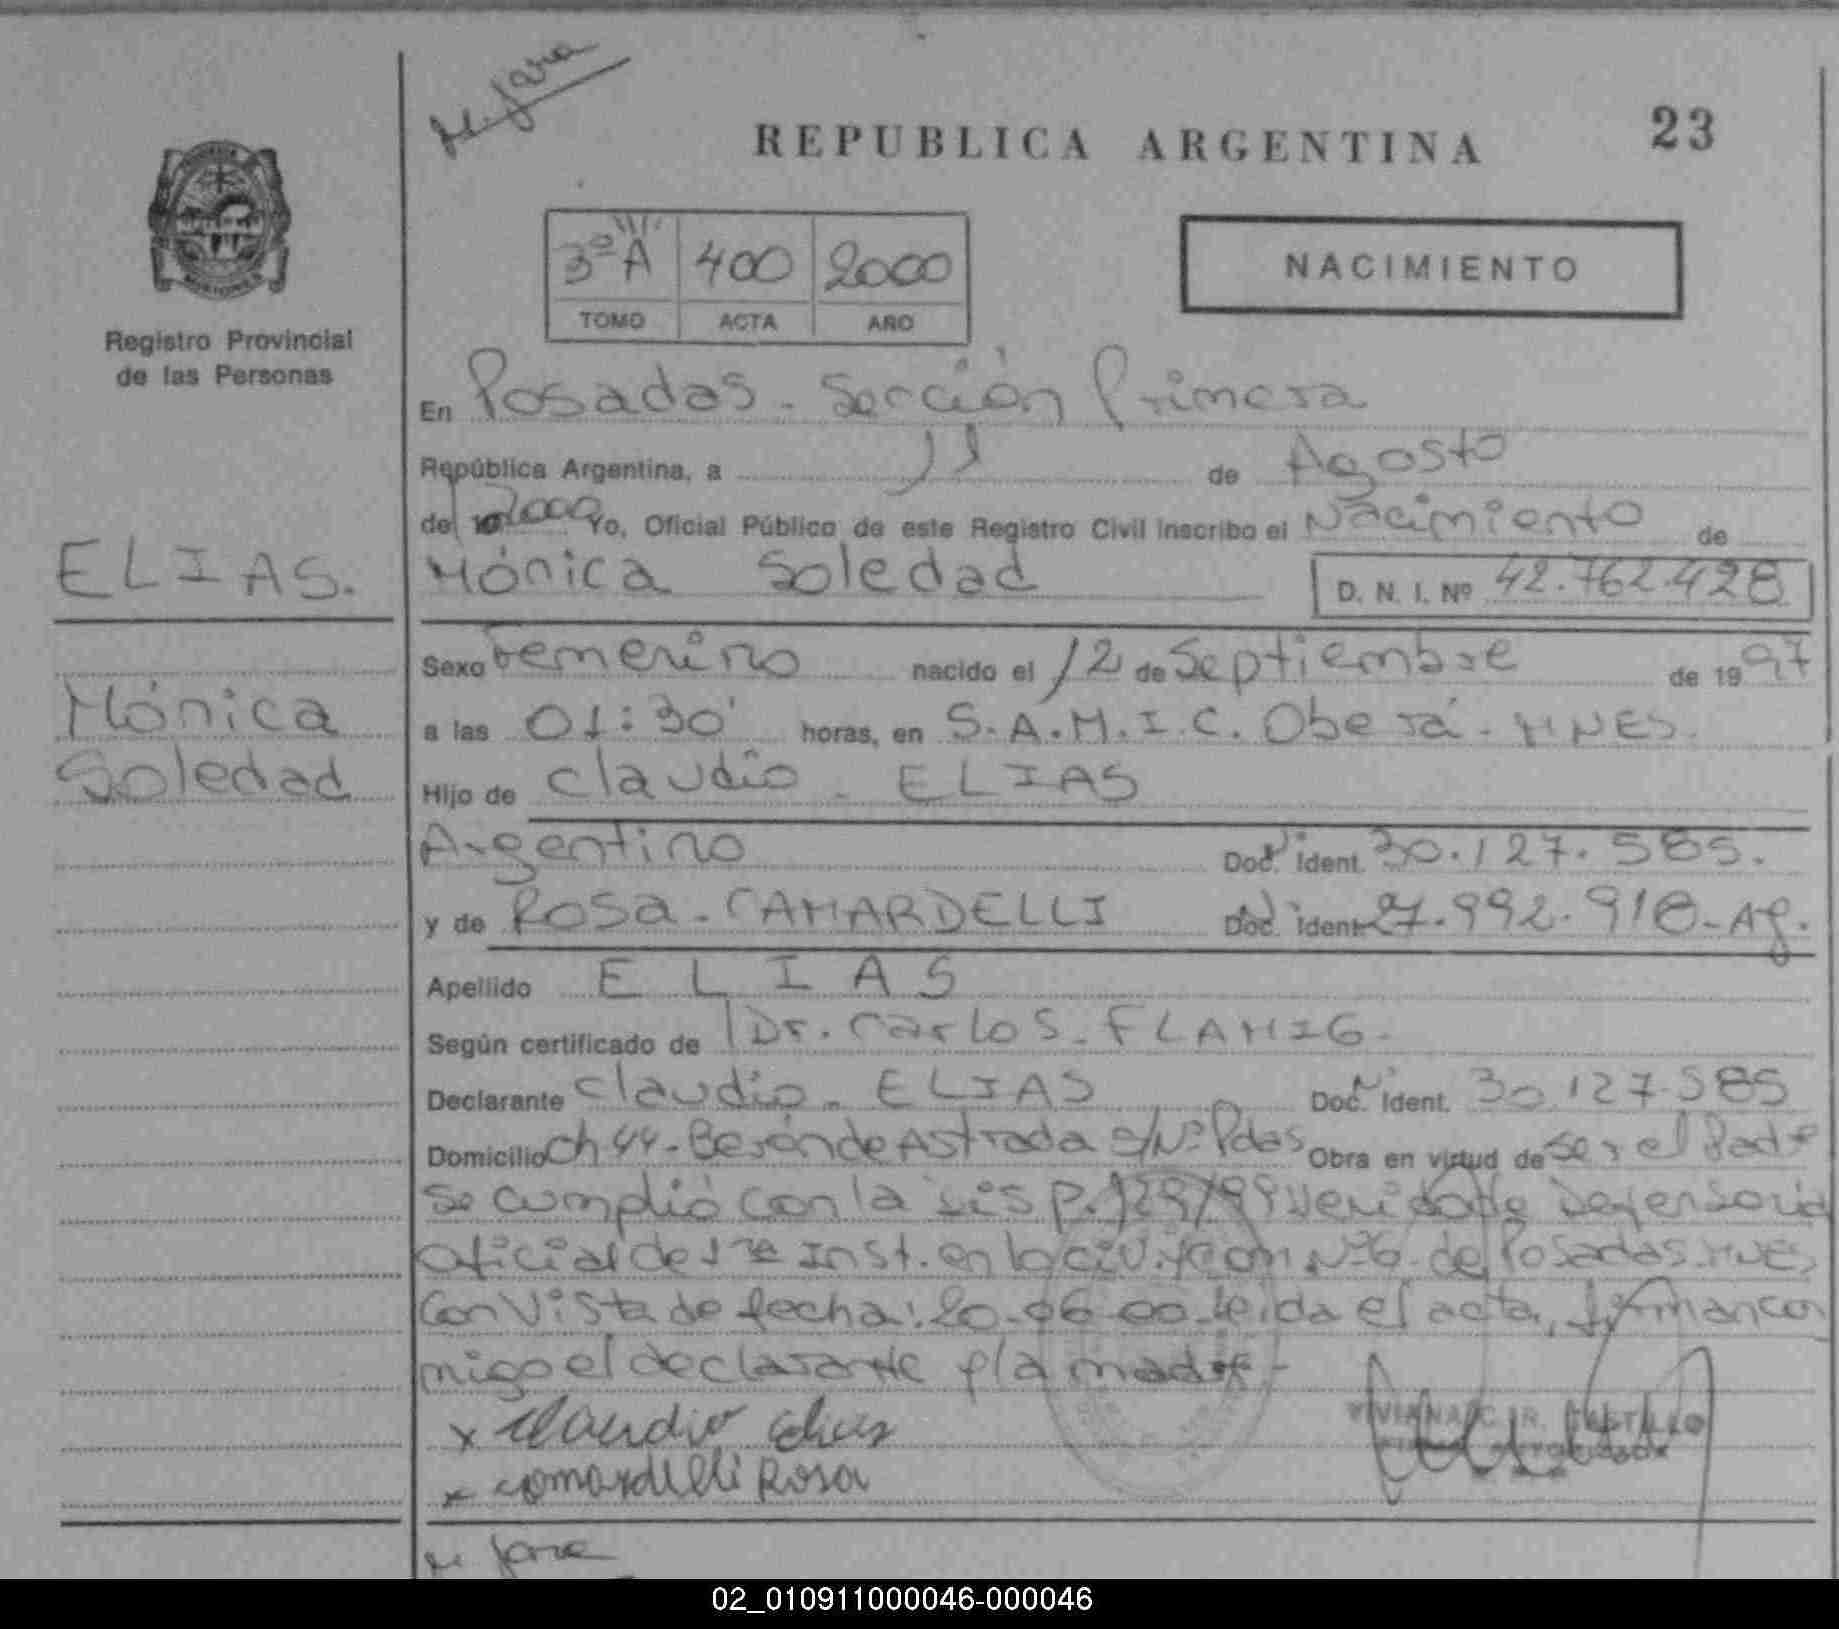 M. Jara
REPUBLICA ARGENTINA
23
3º A 400 2000
TOMO ACTA AÑO
NACIMIENTO
Registro Provincial
de las Personas
En Posadas - Sección Primera
República Argentina, a 11 de Agosto
de 2000 Yo, Oficial Público de este Registro Civil inscribo el Nacimiento de
ELIAS.
Mónica Soledad D. N. I. Nº 42.762.428
Sexo Femenino nacido el 12 de Septiembre de 1997
Mónica
a las 01:30' horas, en S.A.M.I.C. Oberá - MNES.
Soledad
Hijo de Claudio - ELIAS
Argentino Doc. Ident. 30.127.585.
y de Rosa - CAMARDELLI Doc. Ident. 27.992.918 - Ag.
Apellido ELIAS
Según certificado de Dr. Carlos - FLAMIG -
Declarante Claudio - ELIAS Doc. Ident. 30.127.585
Domicilio Ch 44 - Berón de Astrada s/Nº Pdas Obra en virtud de ser el Padre
Se cumplió con la Disp. 129/99 Venido de Defensoria
Oficial de 1ra Inst. en lo civ. y com Nº 6 de Posadas. MNES
Con Vista de fecha: 20-06-00 leida el acta, firman con
migo el declarante y la madre -
x Claudio Elias
x Camardelli Rosa
VIVIANA C. R. CASTILLO
M. Jara
02_010911000046-000046